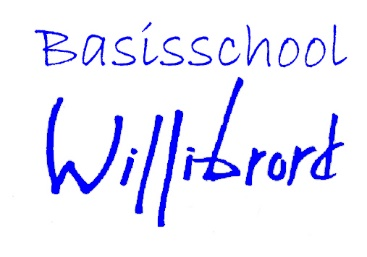 Basisschool
Willibrord